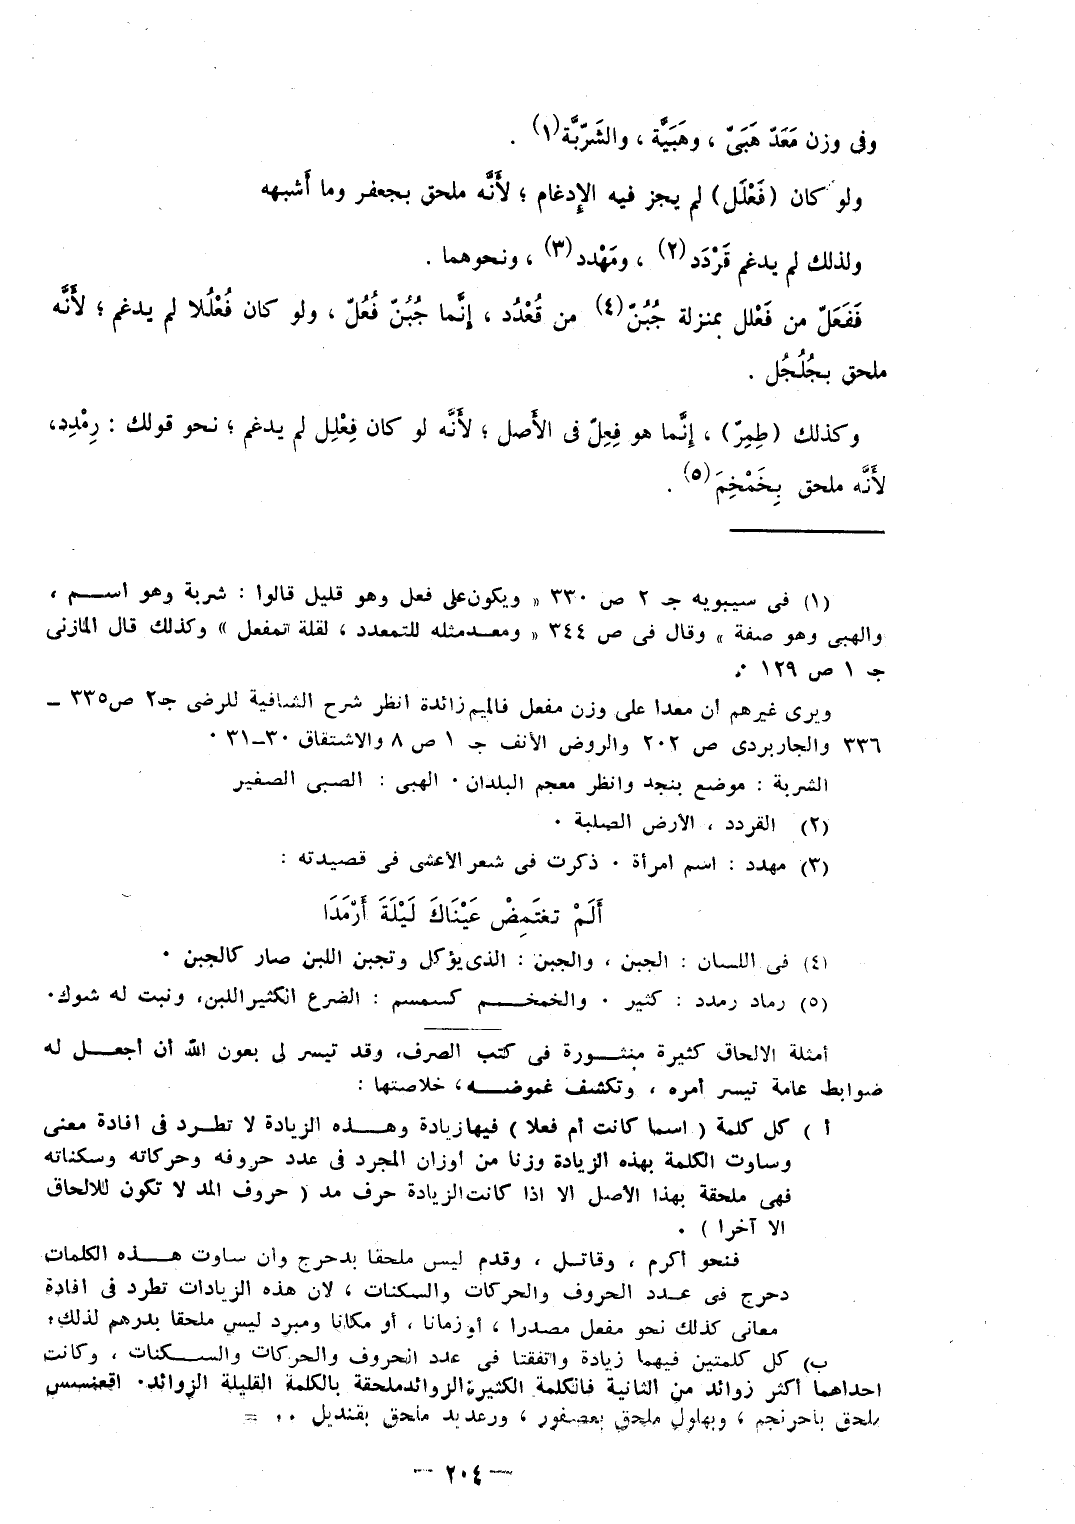 وفى وزن مَعَدّ هَبَىّ ، وهَبَيَّة ، والشَرَبَّة(١) .
ولو كان (فَعْلَل) لم يجز فيه الإِدغام ؛ لأَنَّه ملحق بجعفر وما أَشبهه
ولذلك لم يدغم قَرْدَد(٢) ، ومَهْدد(٣) ، ونحوهما .
فَفَعَلّ من فَعْلل بمنزلة جُبُنّ(٤) من قُعْدُد ، إِنَّما جُبُنّ فُعُلّ ، ولو كان فُعْلُلا لم يدغم ؛ لأَنَّه
ملحق بجُلْجُل .
وكذلك (طِمِرّ) ، إِنَّما هو فِعِلّ فى الأَصل ؛ لأَنَّه لو كان فِعْلِل لم يدغم ؛ نحو قولك : رِمْدِد،
لأَنَّه ملحق بِخَمْخِمَ(٥) .
(١) فى سيبويه جـ ٢ ص ٣٣٠ « ويكون على فعل وهو قليل قالوا : شربة وهو اسـم ،
والهبى وهو صفة » وقال فى ص ٣٤٤ « ومعـد مثله للتمعدد ، لقلة تمفعل » وكذلك قال المازنى
جـ ١ ص ١٢٩ .
ويرى غيرهم أن معدا على وزن مفعل فالميم زائدة انظر شرح الشافية للرضى جـ٢ ص٣٣٥ –
٣٣٦ والجاربردى ص ٢٠٢ والروض الأنف جـ ١ ص ٨ والاشتقاق ٣٠–٣١ .
الشربة : موضع بنجد وانظر معجم البلدان . الهبى : الصبى الصغير
(٢) القردد ، الأرض الصلبة .
(٣) مهدد : اسم امرأة . ذكرت فى شعر الأعشى فى قصيدته :
أَلَمْ تغتَمِضْ عَيْنَاكَ لَيْلَةَ أَرْمَدَا
(٤) فى اللسان : الجبن ، والجبن : الذى يؤكل وتجبن اللبن صار كالجبن .
(٥) رماد رمدد : كثير . والخمخـم كسمسم : الضرع الكثير اللبن، ونبت له شوك.
أمثلة الالحاق كثيرة منثـورة فى كتب الصرف، وقد تيسر لى بعون الله أن أجعـل له
ضوابط عامة تيسر أمره ، وتكشف غموضـه، خلاصتها :
أ ) كل كلمة ( اسما كانت أم فعلا ) فيها زيادة وهـذه الزيادة لا تطـرد فى افادة معنى
وساوت الكلمة بهذه الزيادة وزنا من أوزان المجرد فى عدد حروفه وحركاته وسكناته
فهى ملحقة بهذا الأصل الا اذا كانت الزيادة حرف مد ( حروف المد لا تكون للالحاق
الا آخرا ) .
فنحو أكرم ، وقاتـل ، وقدم ليس ملحقا بدحرج وان ساوت هـذه الكلمات
دحرج فى عـدد الحروف والحركات والسكنات ، لان هذه الزيادات تطرد فى افادة
معانى كذلك نحو مفعل مصدرا ، أو زمانا ، أو مكانا ومبرد ليس ملحقا بدرهم لذلك .
ب) كل كلمتين فيهما زيادة واتفقتا فى عدد الحروف والحركات والسـكنات ، وكانت
احداهما أكثر زوائد من الثانية فالكلمة الكثيرة الزوائد ملحقة بالكلمة القليلة الزوائد. اقعنسس
ملحق باحرنجم ، وبهلول ملحق بعصفور ، ورعديد ملحق بقنديل .. =
— ٢٠٤ —